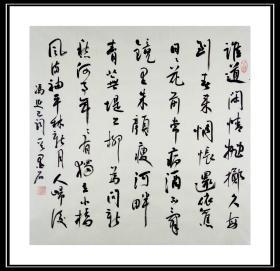 誰道闲情抛擲久每
到春来惆悵還依舊
日日花前常病酒不辞
鏡里朱顔瘦河畔
青蕪堤上柳為问新
愁何事年年有獨立小橋
風满袖平林新月人歸後
馮延巳词 墨石